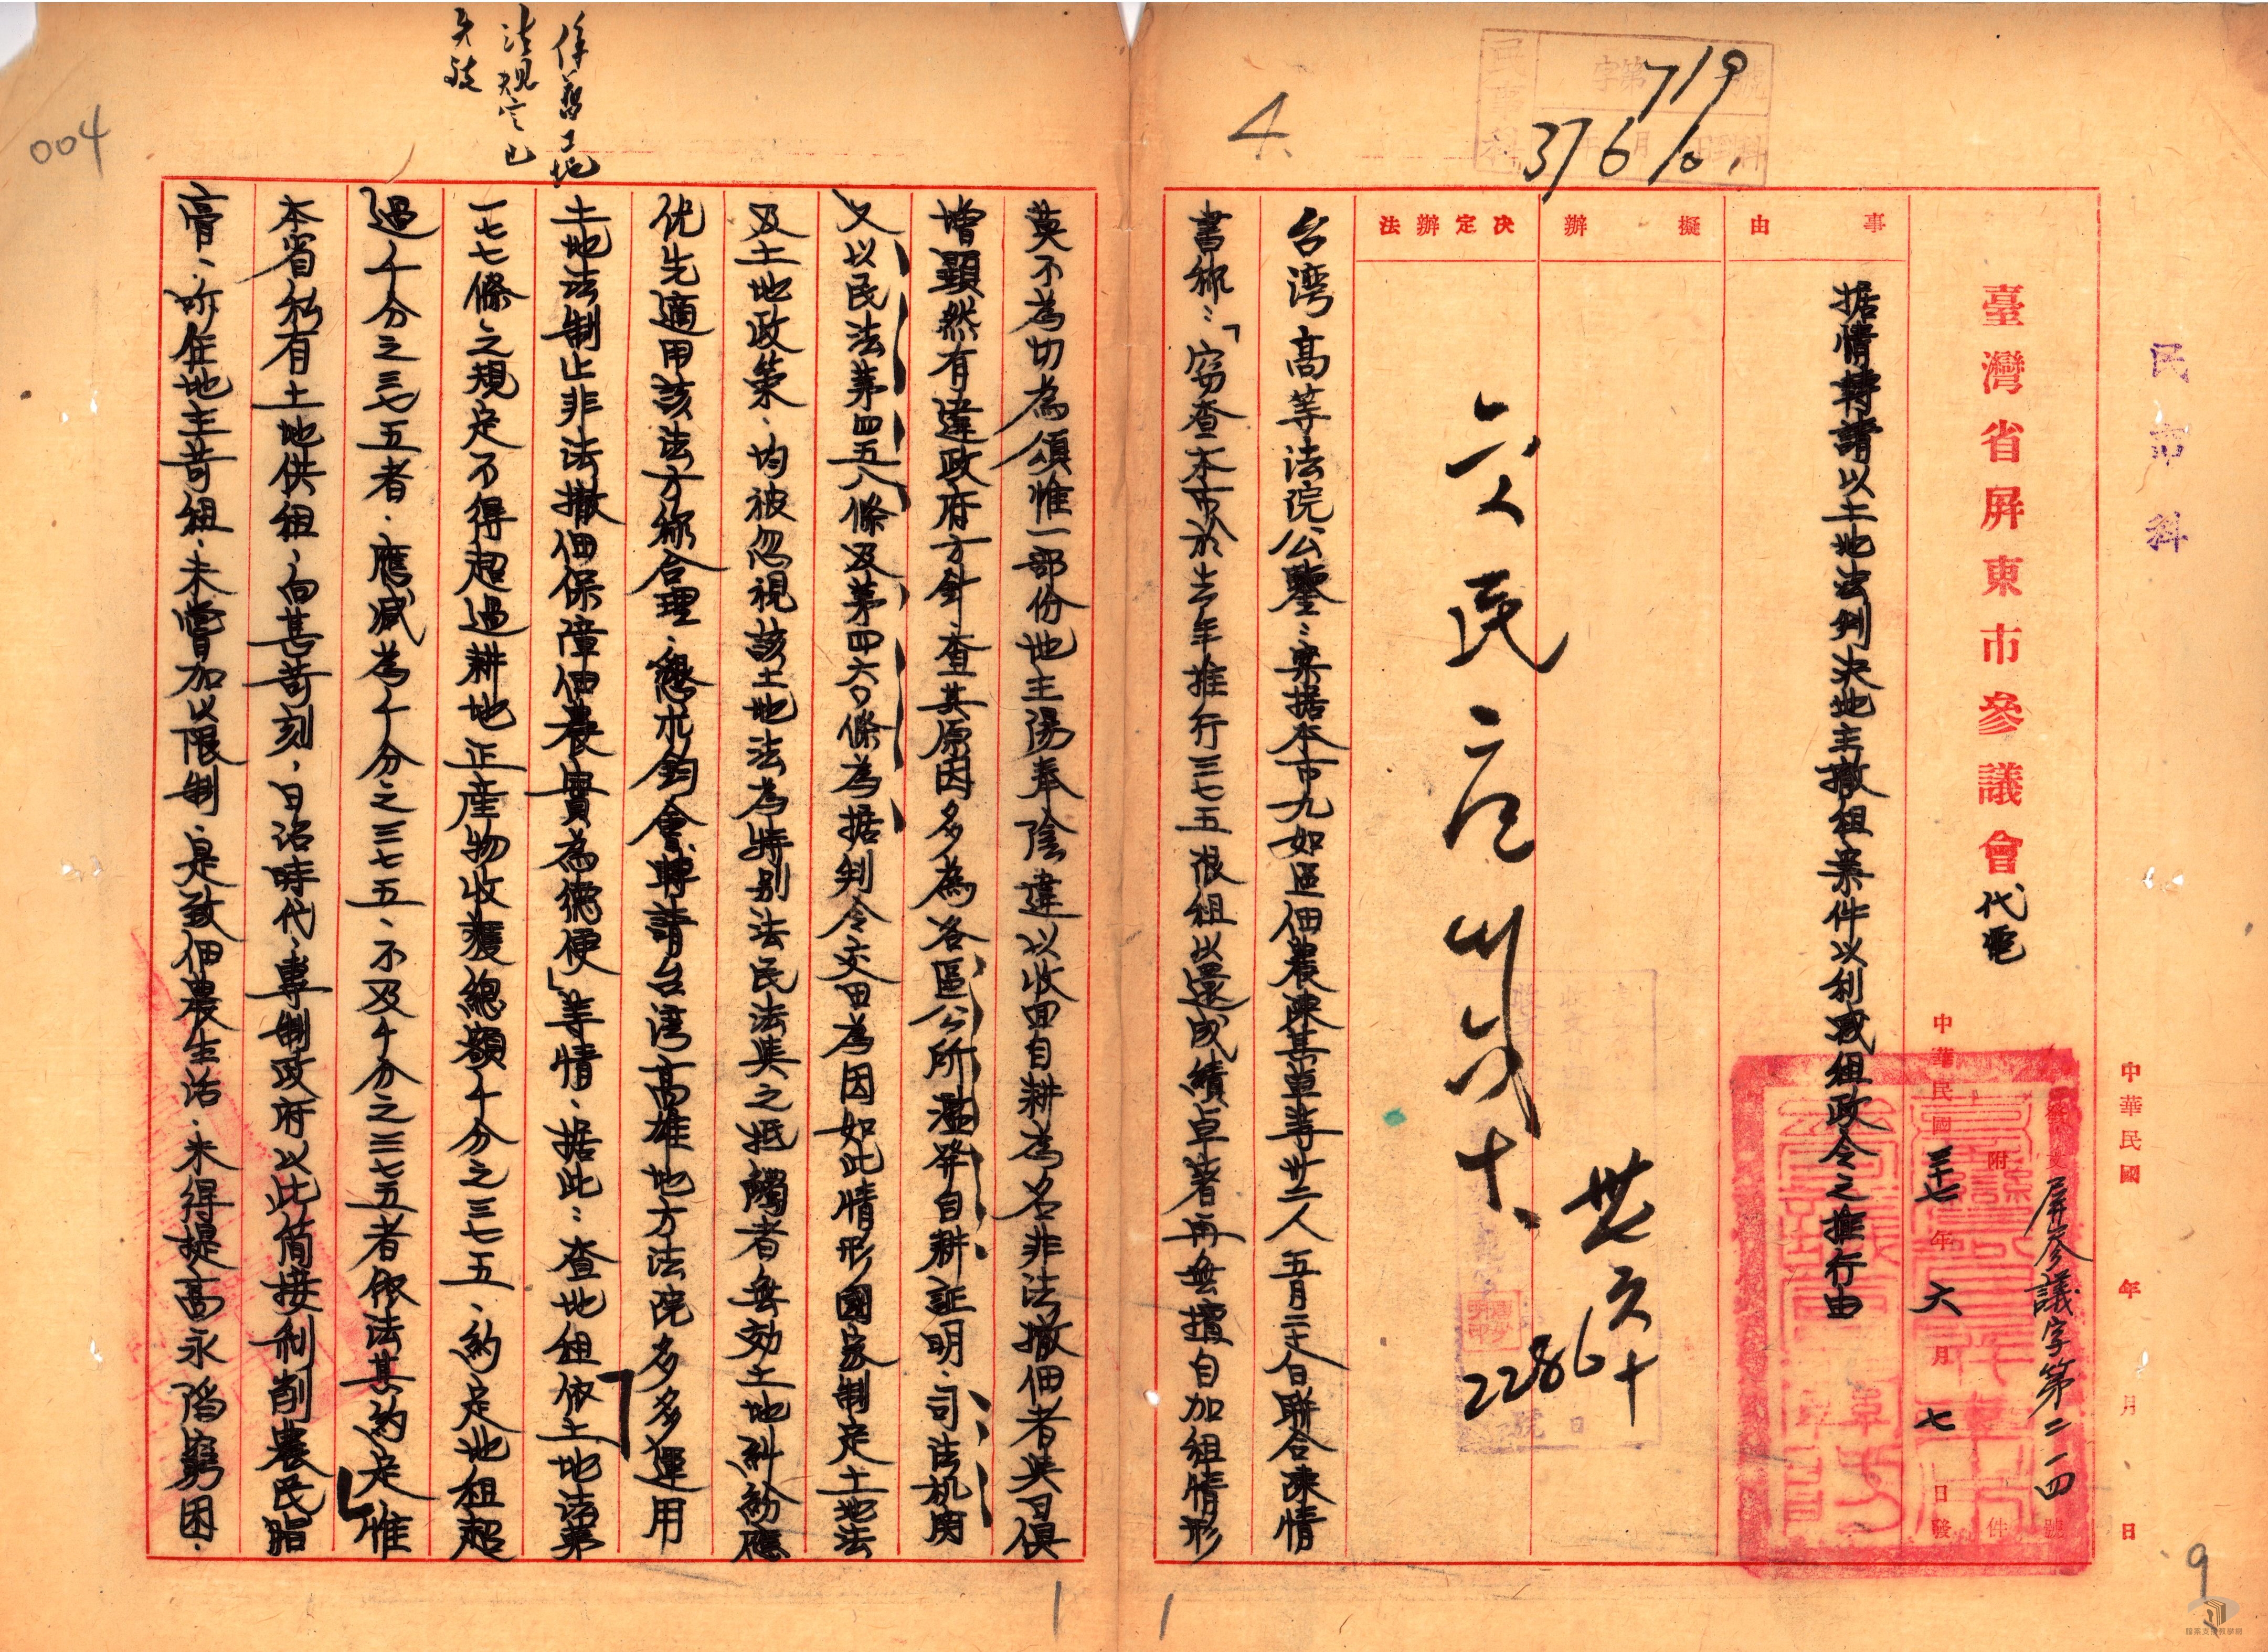 民市科
中華民國 年 月 日
臺灣省屏東市參議會代電
發文屏參議字第二一四號
附 件
中華民國三十七年六月七日發
事由
据情轉請以土地法判決地主撤租案件以利減租政令之推行由
擬辦
決定辦法
台灣高等法院公鑒：案据本市九如區佃農陳某卓等廿二人五月二十八日聯合陳情
書稱：「竊查本市於去年推行三七五限租以還成績卓著再無擅自加租情形
莫不為切為頌惟一部份地主陽奉陰違以收回自耕為名非法撤佃者與日俱
增顯然有違政府方針、查其原因多為各區公所濫發自耕証明、司法机関
又以民法第四五八條及第四六〇條為据判令交田為因如此情形國家制定土地法
及土地政策、均被忽視該土地法為特別法民法與之抵觸者無効土地糾紛應
优先適用該法方称合理、懇求鈞會轉請台灣高雄地方法院多多運用
土地法制止非法撤佃保障佃農實為德便」等情、据此：查地租依土地法第
一七七條之規定不得超過耕地正產物收獲總額千分之三七五、約定地租超
過千分之三七五者、應減為千分之三七五、不及千分之三七五者依法其約定惟
本省私有土地供租、向甚苛刻、日治時代、專制政府以此简接剝削農民脂
膏、昨年地主苛租、未嘗加以限制、是致佃農生活、未得提高永陷窮困、
係舊土地
法規定已
失效
719
37 6 10
4
004
2286
卅七
六十
9
1
1